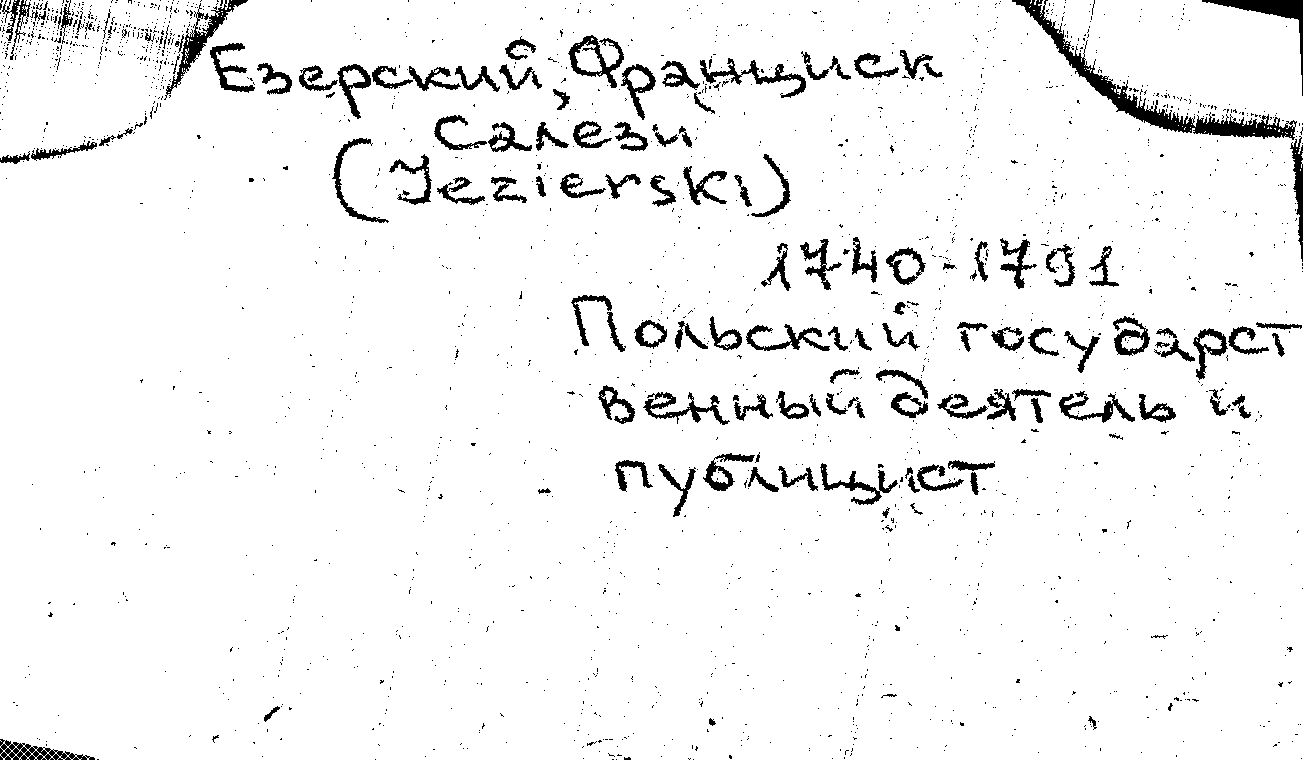 Езерский, Франциск
Салези
(Jezierski)
1740-1791
Польский государст
венный деятель и
публицист